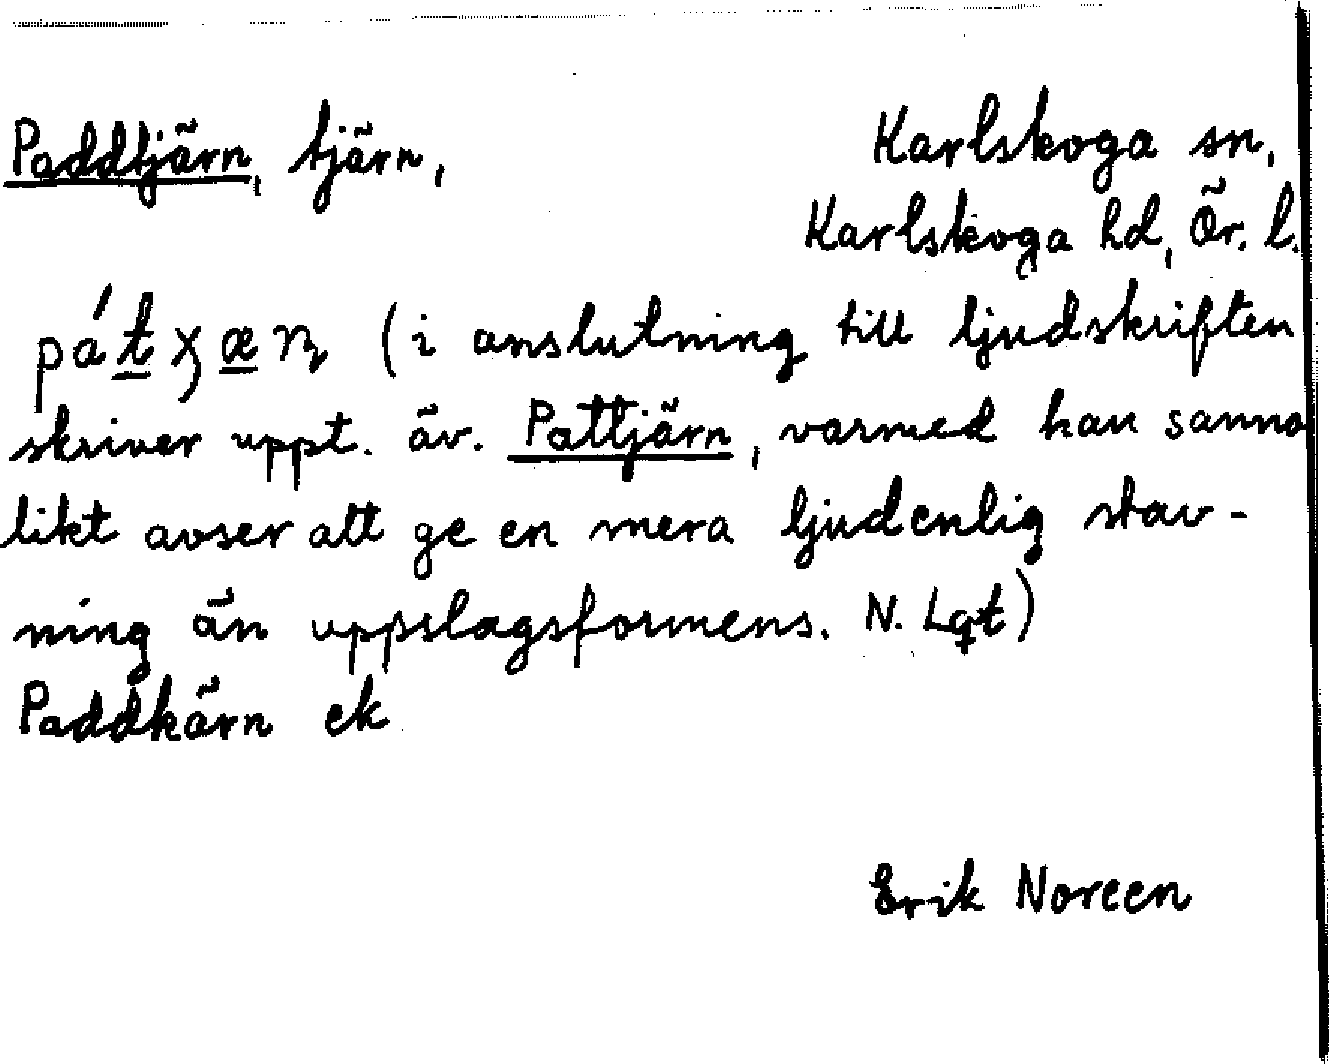 Paddtjärn, tjärn, Karlskoga sn,
Karlskoga hd, Ör. l.
pát̲χæ̲ɳ (i anslutning till ljudskriften
skriver uppt. äv. Pattjärn, varmed han sanno
likt avser att ge en mera ljudenlig stav-
ning än uppslagsformens. N. Lqt)
Paddkärn ek
Erik Noreen